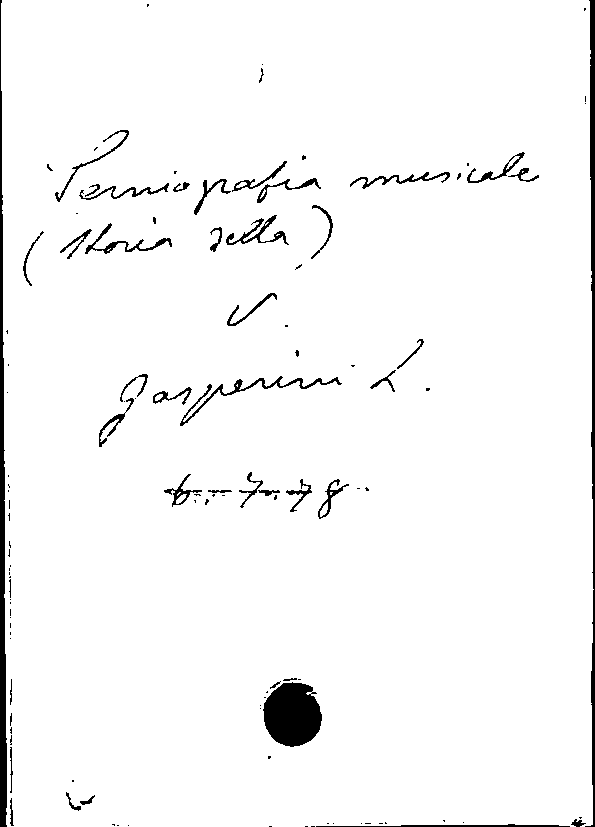 Semiografia musicale
(storia della)
V.
Gasperini L.
6-7-78